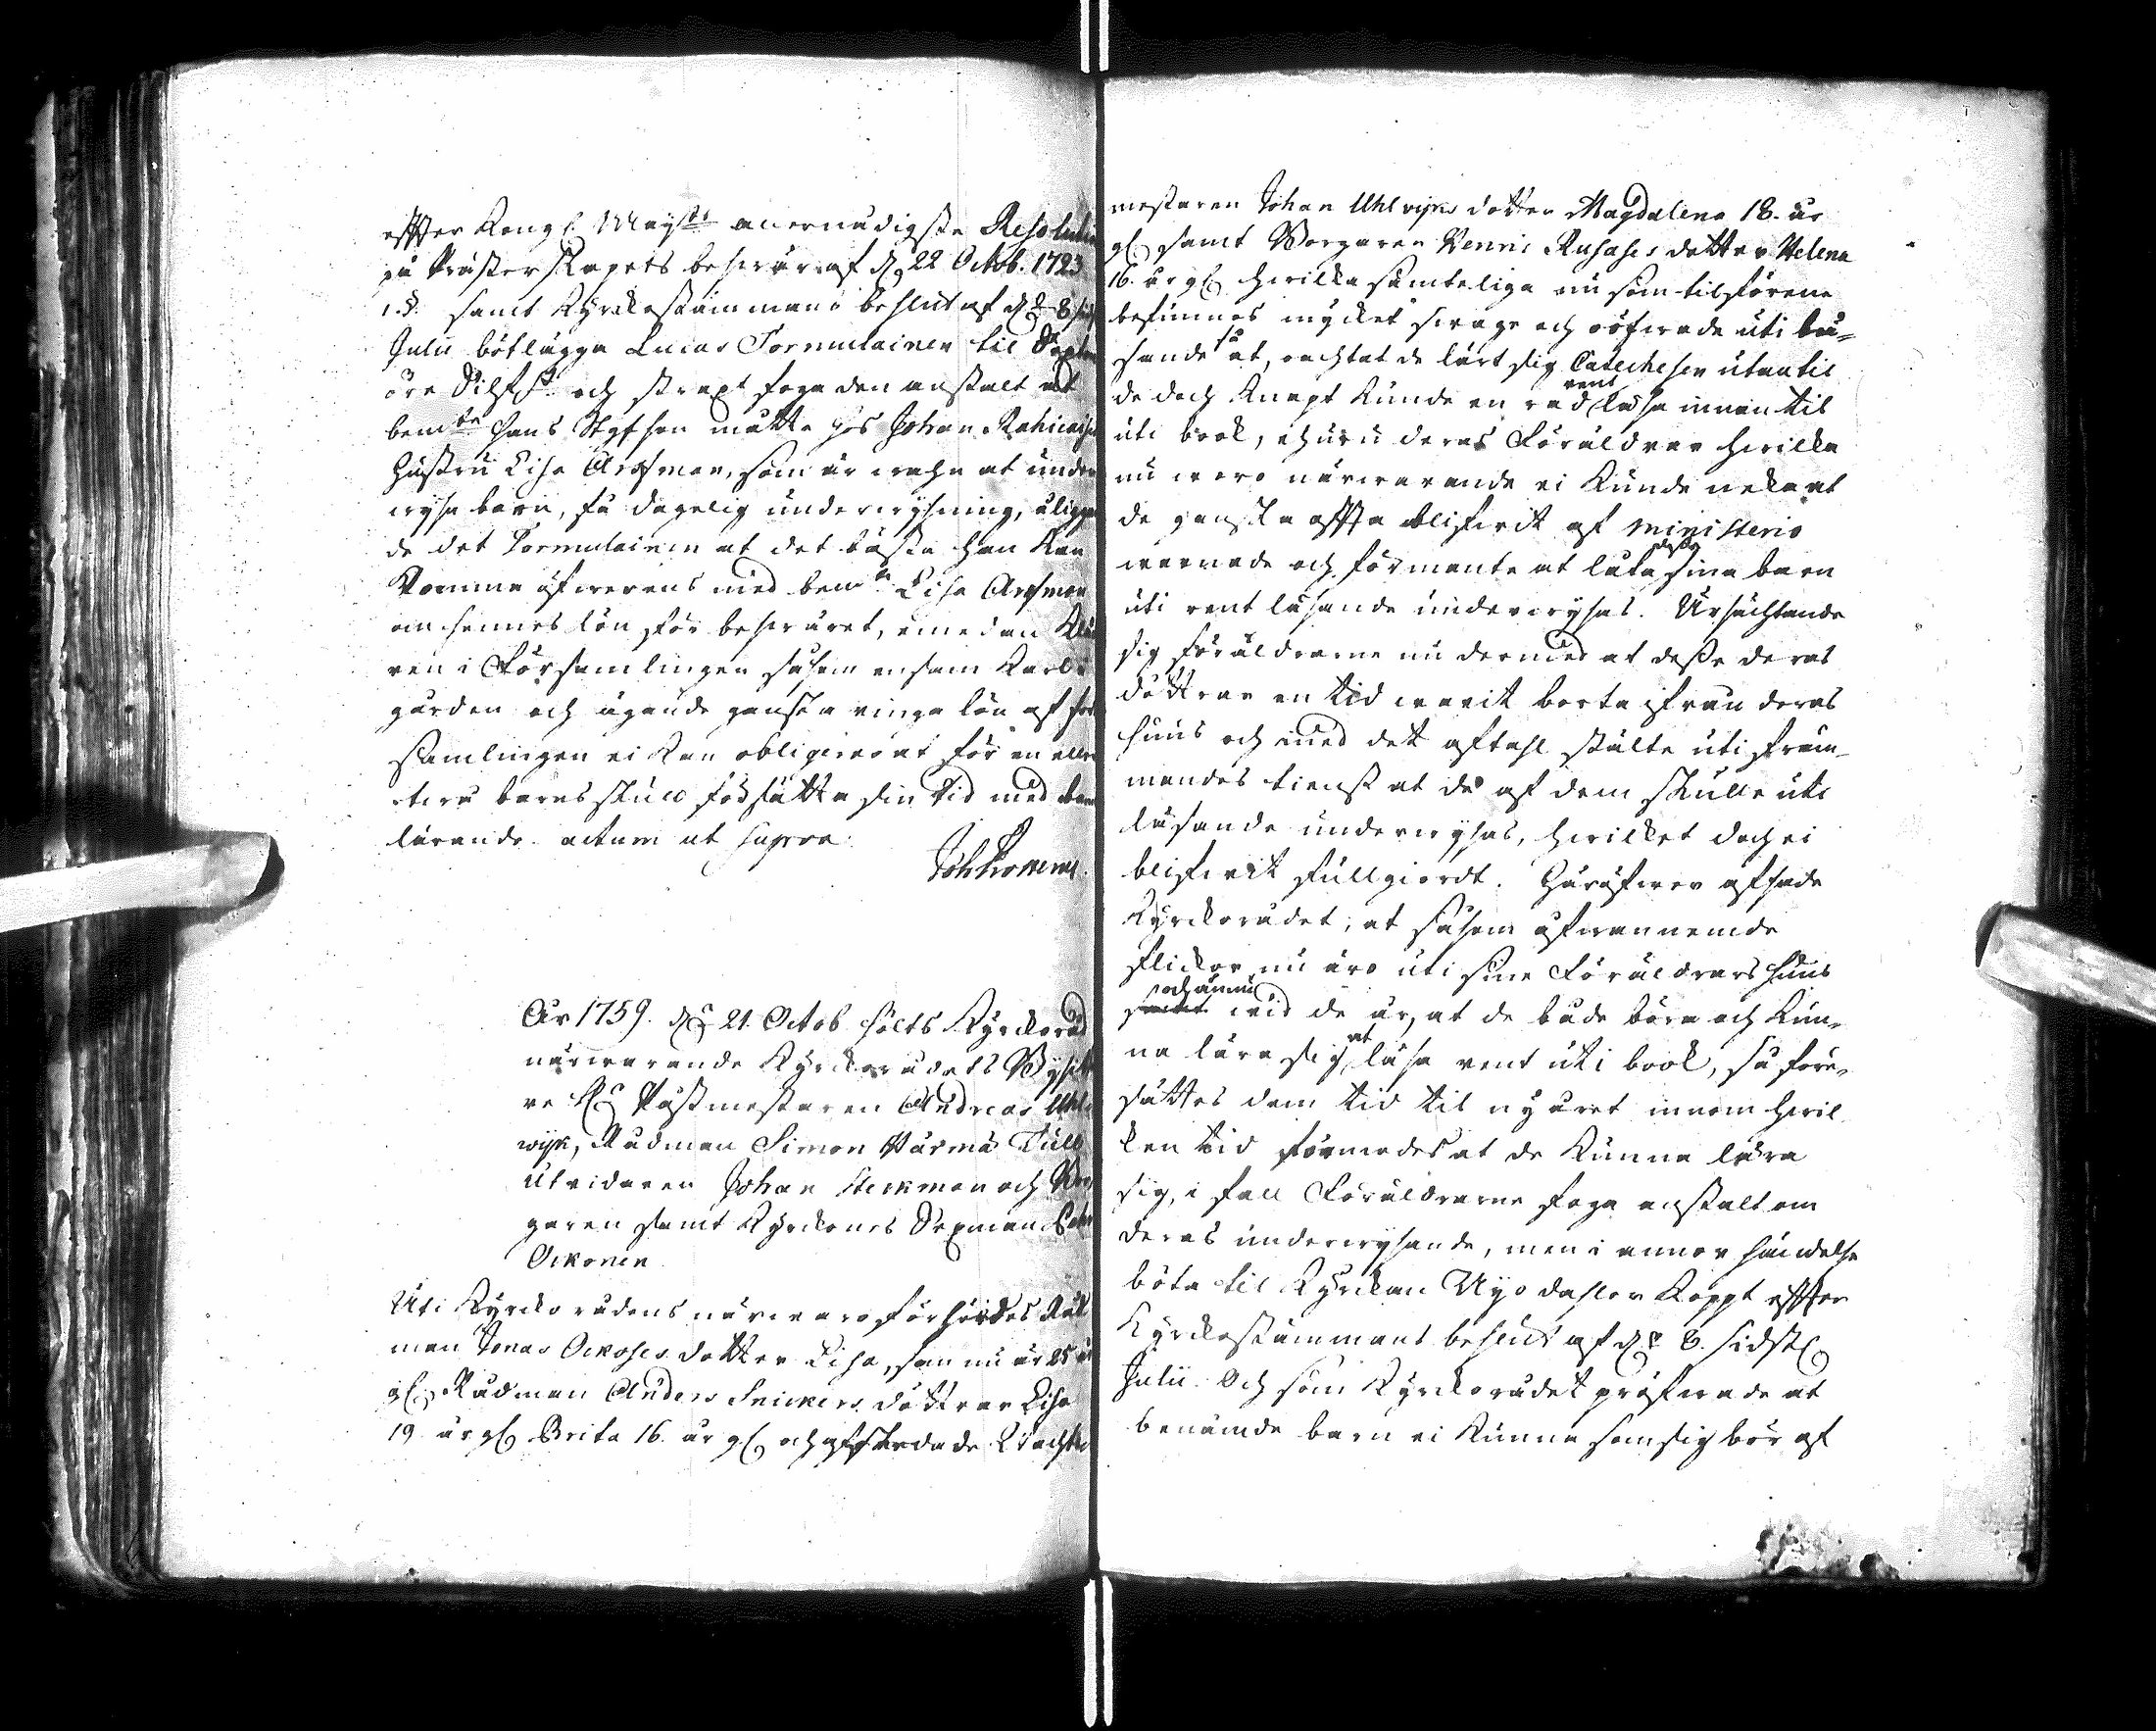 effter Kongl. Mayst:s allernådigste Resolution
på Prästerskapets beswär af d. 22 Octob. 1723
1.§. samt Kyrckostämmans beslut af d. 8 sidstl.
Julii bötlägga Lucas Tornulainen til
öre Silf:mt och straxt foga den anstalt at
bem:te Hans måtte hos Johan
Hustru Lisa Arosman, som är wahn at under
wysa barn, få dagelig underwysning, åliggan
de det Tornulainen at det bästa han kan
komma öfwerens med bem:te Lisa Arosman
om hennes lön för beswäret, emedan
ren i Församlingen såsom ensam Karl i
gården och ägande ganska ringa lön af för
samlingen ei kan obligeras at för en eller
barns skuld försätta sin tid med barn
lärande. actum ut supra.
År 1759. d. 21. Octob. hölts Kyrckoråd
närwarande Kyrckorådets Bysitta
re H:r Påstmestaren Andreas Uhl
wijk, Rådman Simon Pärmä Tull
utridaren Johan Steckman och Bor
garen samt Kyrckones Sexman
Oikonen
Uti Kyrckorådens närwaro förhördes Råd
man Jonas Oikoses dotter Lisa, som nu är 25 år
gl. Rådman Anders Snickers döttrar Lisa
19 år gl. Brita 16. år gl. och afskedade
mestaren Johan Uhlwijks dotter Magdalena 18. år
gl. samt Borgaren Henric Rusases dotter Helena
16. år gl. hwilka samteliga nu som tilförene
befunnos mycket swage och oöfwade uti lä-
sande så at, oachtat de lärt sig Catechesen utantil
de doch knapt kunde en rad rent läsa innantil
uti book, ehuru deras Föräldrar hwilka
nu woro närwarande ei kunde neka at
de ganska offta blifwit af Ministerio
warnade och förmante at låta dessa sina barn
uti rent läsande underwysas. Ursächtande
sig föräldrarne nu dermed at desse deras
döttrar en tid warit borta ifrån deras
huus och med det aftahl stälte uti främ-
mandes tienst at de af dem skulle uti
läsande underwysas, hwilket doch ei
blifwit fullgiordt. Häröfwer afsade
Kyrckorådet, at såsom ofwannemde
flickor nu äro uti sine Föräldrars huus
och ännu wid de år, at de både böra och kun-
na lära sig at läsa rent uti book, så före-
sättes dem tid til nyåret innom hwil
ken tid förmodes at de kunna lära
sig, i fall Föräldrarne foga anstalt om
deras underwysande, men i annor händelse
böta til Kyrckan Nyo dahler Koppt effter
Kyrckostämmans beslut af d. 8. sidstl.
Julii. Och som Kyrckorådet pröfwade at
benämde barn ei kunna som sig bör af